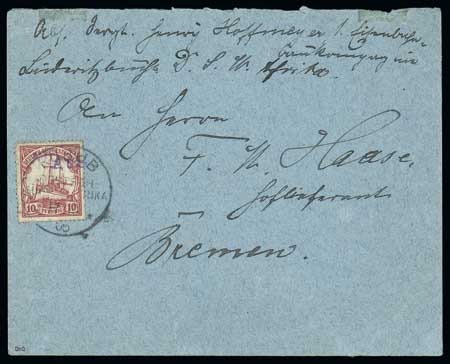 Abs. Sergt. Henri Hoffmeyer 1. Eisenbahn-
baukompagnie
Lüderitzbucht D. S. W. Afrika.
An Herrn
F. W. Haase,
Hoflieferant
Bremen.
10 10